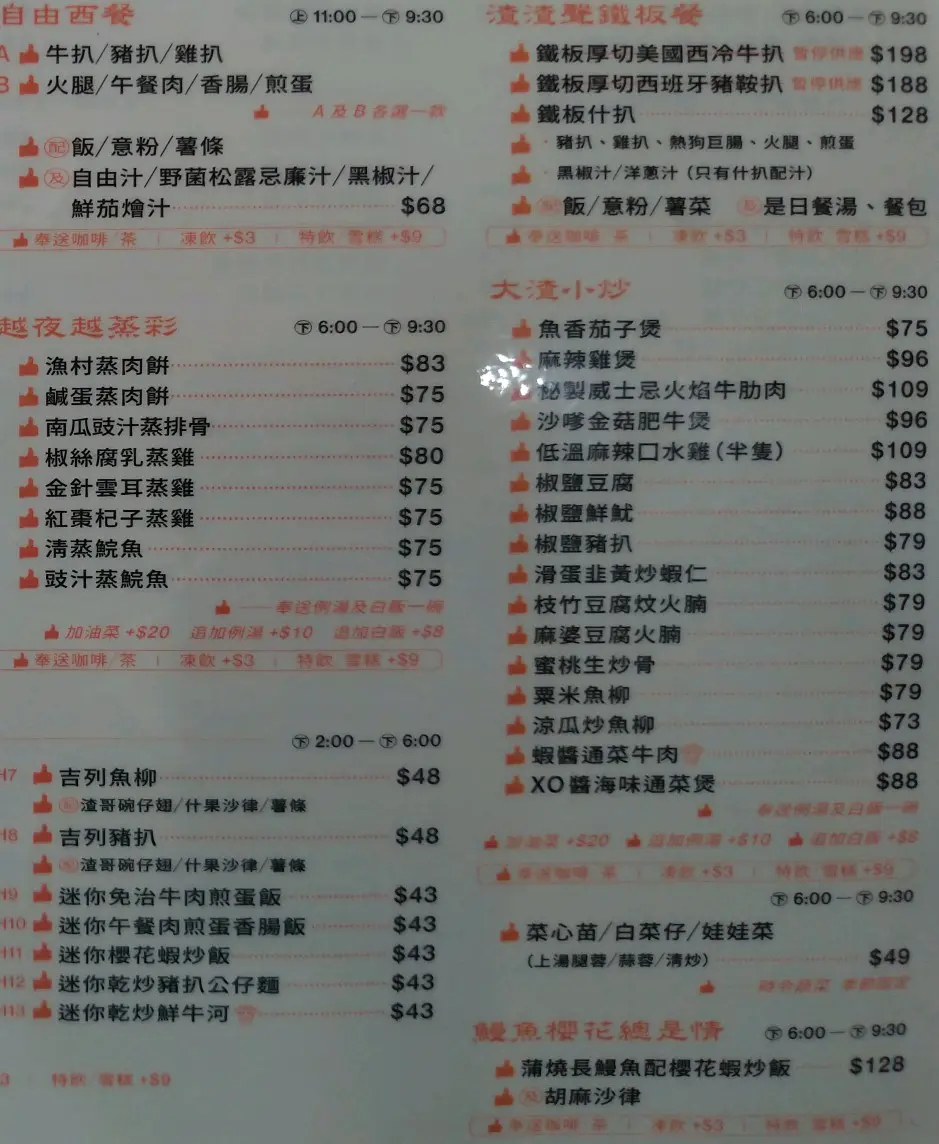 自由西餐 上 11:00 — 下 9:30
A 牛扒/豬扒/雞扒
B 火腿/午餐肉/香腸/煎蛋
A 及 B 各選一款
配 飯/意粉/薯條
及 自由汁/野菌松露忌廉汁/黑椒汁/
鮮茄燴汁 $68
奉送咖啡 茶 | 凍飲 +$3 | 特飲 雪糕 +$9
越夜越蒸彩 下 6:00 — 下 9:30
漁村蒸肉餅 $83
鹹蛋蒸肉餅 $75
南瓜豉汁蒸排骨 $75
椒絲腐乳蒸雞 $80
金針雲耳蒸雞 $75
紅棗杞子蒸雞 $75
清蒸鯇魚 $75
豉汁蒸鯇魚 $75
奉送例湯及白飯一碗
加油菜 +$20 追加例湯 +$10 追加白飯 +$8
奉送咖啡 茶 | 凍飲 +$3 | 特飲 雪糕 +$9
下 2:00 — 下 6:00
H7 吉列魚柳 $48
配 渣哥碗仔翅/什果沙律/薯條
H8 吉列豬扒 $48
配 渣哥碗仔翅/什果沙律/薯條
H9 迷你免治牛肉煎蛋飯 $43
H10 迷你午餐肉煎蛋香腸飯 $43
H11 迷你櫻花蝦炒飯 $43
H12 迷你乾炒豬扒公仔麵 $43
H13 迷你乾炒鮮牛河 $43
3 特飲 雪糕 +$9
渣渣聲鐵板餐 下 6:00 — 下 9:30
鐵板厚切美國西冷牛扒 暫停供應 $198
鐵板厚切西班牙豬鞍扒 暫停供應 $188
鐵板什扒 $128
· 豬扒、雞扒、熱狗巨腸、火腿、煎蛋
· 黑椒汁/洋蔥汁 (只有什扒配汁)
配 飯/意粉/薯菜 及 是日餐湯、餐包
奉送咖啡 茶 | 凍飲 +$3 | 特飲 雪糕 +$9
大渣小炒 下 6:00 — 下 9:30
魚香茄子煲 $75
麻辣雞煲 $96
秘製威士忌火焰牛肋肉 $109
沙嗲金菇肥牛煲 $96
低溫麻辣口水雞(半隻) $109
椒鹽豆腐 $83
椒鹽鮮魷 $88
椒鹽豬扒 $79
滑蛋韭黃炒蝦仁 $83
枝竹豆腐炆火腩 $79
麻婆豆腐火腩 $79
蜜桃生炒骨 $79
粟米魚柳 $79
涼瓜炒魚柳 $73
蝦醬通菜牛肉 $88
XO醬海味通菜煲 $88
奉送例湯及白飯一碗
加油菜 +$20 追加例湯 +$10 追加白飯 +$8
奉送咖啡 茶 | 凍飲 +$3 | 特飲 雪糕 +$9
下 6:00 — 下 9:30
菜心苗/白菜仔/娃娃菜
(上湯腿蓉/蒜蓉/清炒) $49
時令蔬菜
鰻魚櫻花總是情 下 6:00 — 下 9:30
蒲燒長鰻魚配櫻花蝦炒飯 $128
及 胡麻沙律
奉送咖啡 茶 | 凍飲 +$3 | 特飲 雪糕 +$9